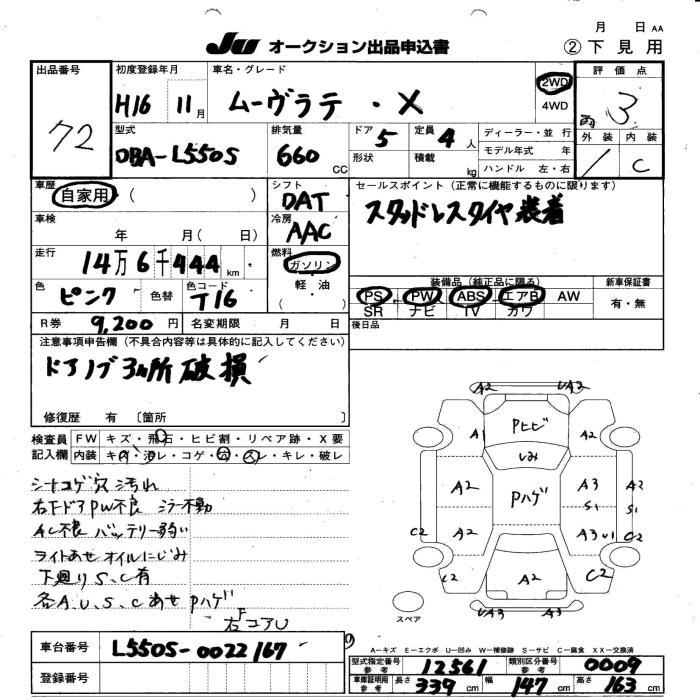 月 日 AA
JU オークション出品申込書 ② 下見用
出品番号 72
初度登録年月 H16 11月
車名・グレード ムーヴラテ・X
2WD 4WD
評価点 3
外装 内装 C
型式 DBA-L550S
排気量 660 CC
ドア 5 定員 4 人
形状 積載 kg
ディーラー・並行
モデル年式 年
ハンドル 左・右
車歴 自家用 ( )
シフト DAT
セールスポイント (正常に機能するものに限ります)
スタッドレスタイヤ装着
車検 年 月( 日)
冷房 AAC
走行 14万6千444 km
燃料 ガソリン 軽油 ( )
色 ピンク 色替 色コード T16
装備品 (純正品に限る) 新車保証書
PS PW ABS エアB AW 有・無
SR ナビ TV カワ
R券 9,200円 名変期限 月 日
後日品
注意事項申告欄 (不具合内容等は具体的に記入してください)
ドアノブ3ヵ所破損
修復歴 有 〔箇所 〕
検査員 FW キズ・飛石・ヒビ割・リペア跡・X要
記入欄 内装 キズ・汚レ・コゲ・穴・スレ・キレ・破レ
シートコゲ穴汚れ
右下ドアPW不良 ミラー不動
AC不良 バッテリー弱い
ライトあせ オイルにじみ
下廻りS、C有
各A、U、S、Cあせ Pハゲ
右FコアU
A2 A3
A1 Pヒビ A2
しみ
A2 Pハゲ A3 S1 A2 S1
C2 A2 A3 U1 C2
C2 A2 C2
UA3 A2
スペア
A-キズ E-エクボ U-凹み W-補修跡 S-サビ C-腐食 XX-交換済
車台番号 L550S-0022167
型式指定番号 参考 12561 類別区分番号 参考 0009
登録番号
車庫証明用 参考 長さ 339 cm 幅 147 cm 高さ 163 cm